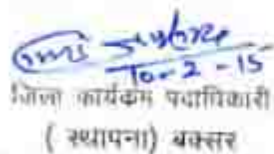 10-2-15
जिला कार्यक्रम पदाधिकारी
( स्थापना) बक्सर